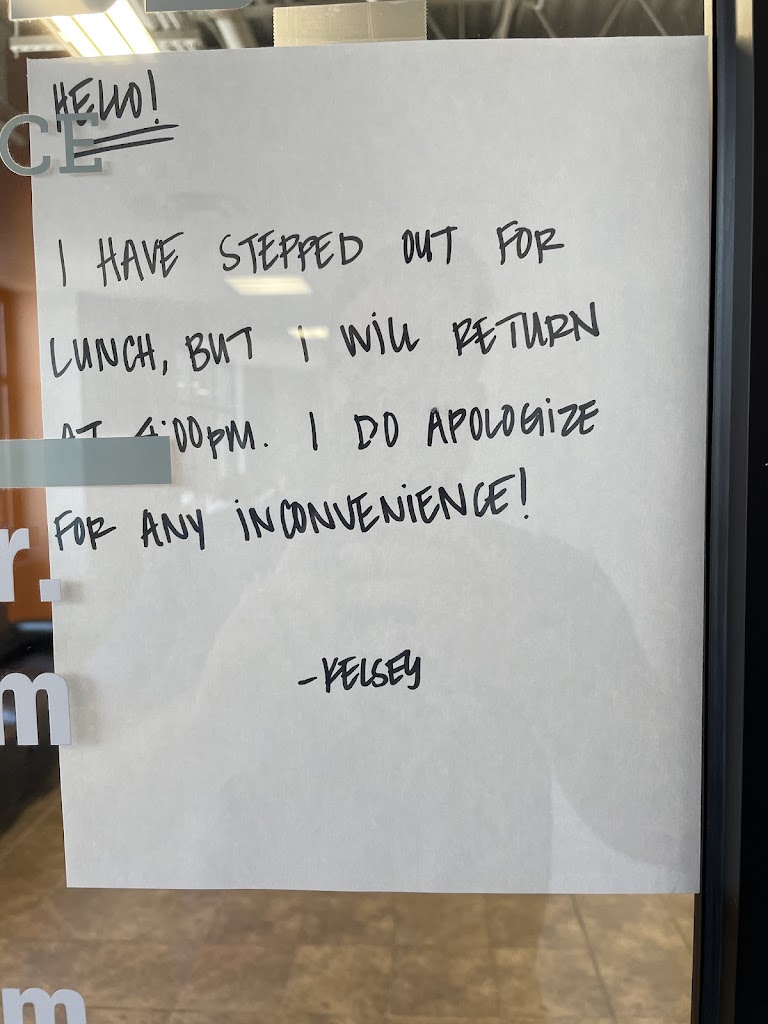 HELLO!
CE
I HAVE STEPPED OUT FOR
LUNCH, BUT I WILL RETURN
AT 4:00PM. I DO APOLOGIZE
r.
FOR ANY INCONVENIENCE!
m
-KELSEY
m